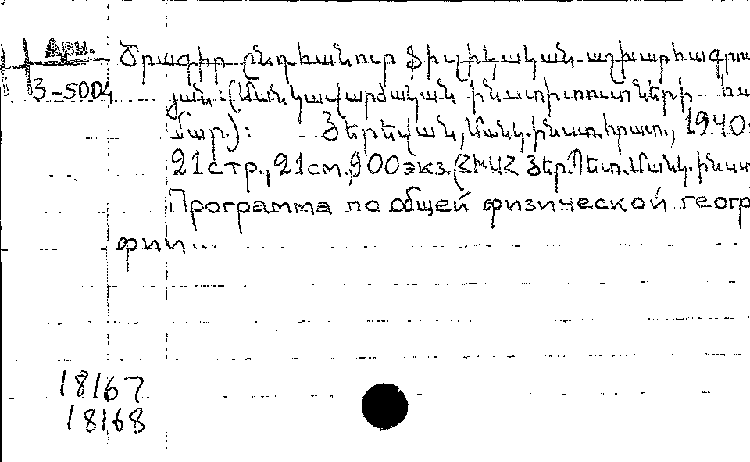 Арм.
Ծրագիր ընդհանուր ֆիզիկական աշխարհագրու
3-5004 թյան: (Մանկավարժական ինստիտուտների հա
մար.): Յերեվան, Մանկ. ինստ. հրատ., 1940.
21стр., 21см, 900экз. (ՀՍՍՀ Յեր. Պետ. Մանկ. ինստ
Программа по общей физической геогр
фии...
18167
18168